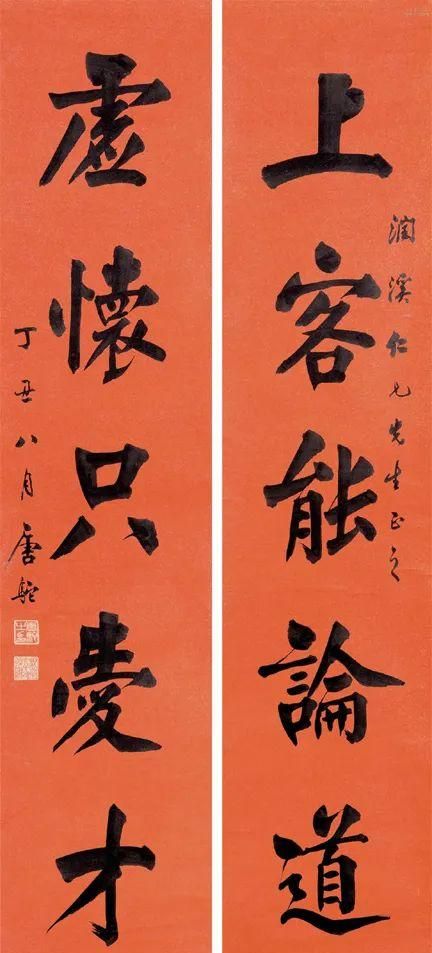 潤溪仁兄先生正之
上客能論道
虛懷只愛才
丁丑八月唐駝